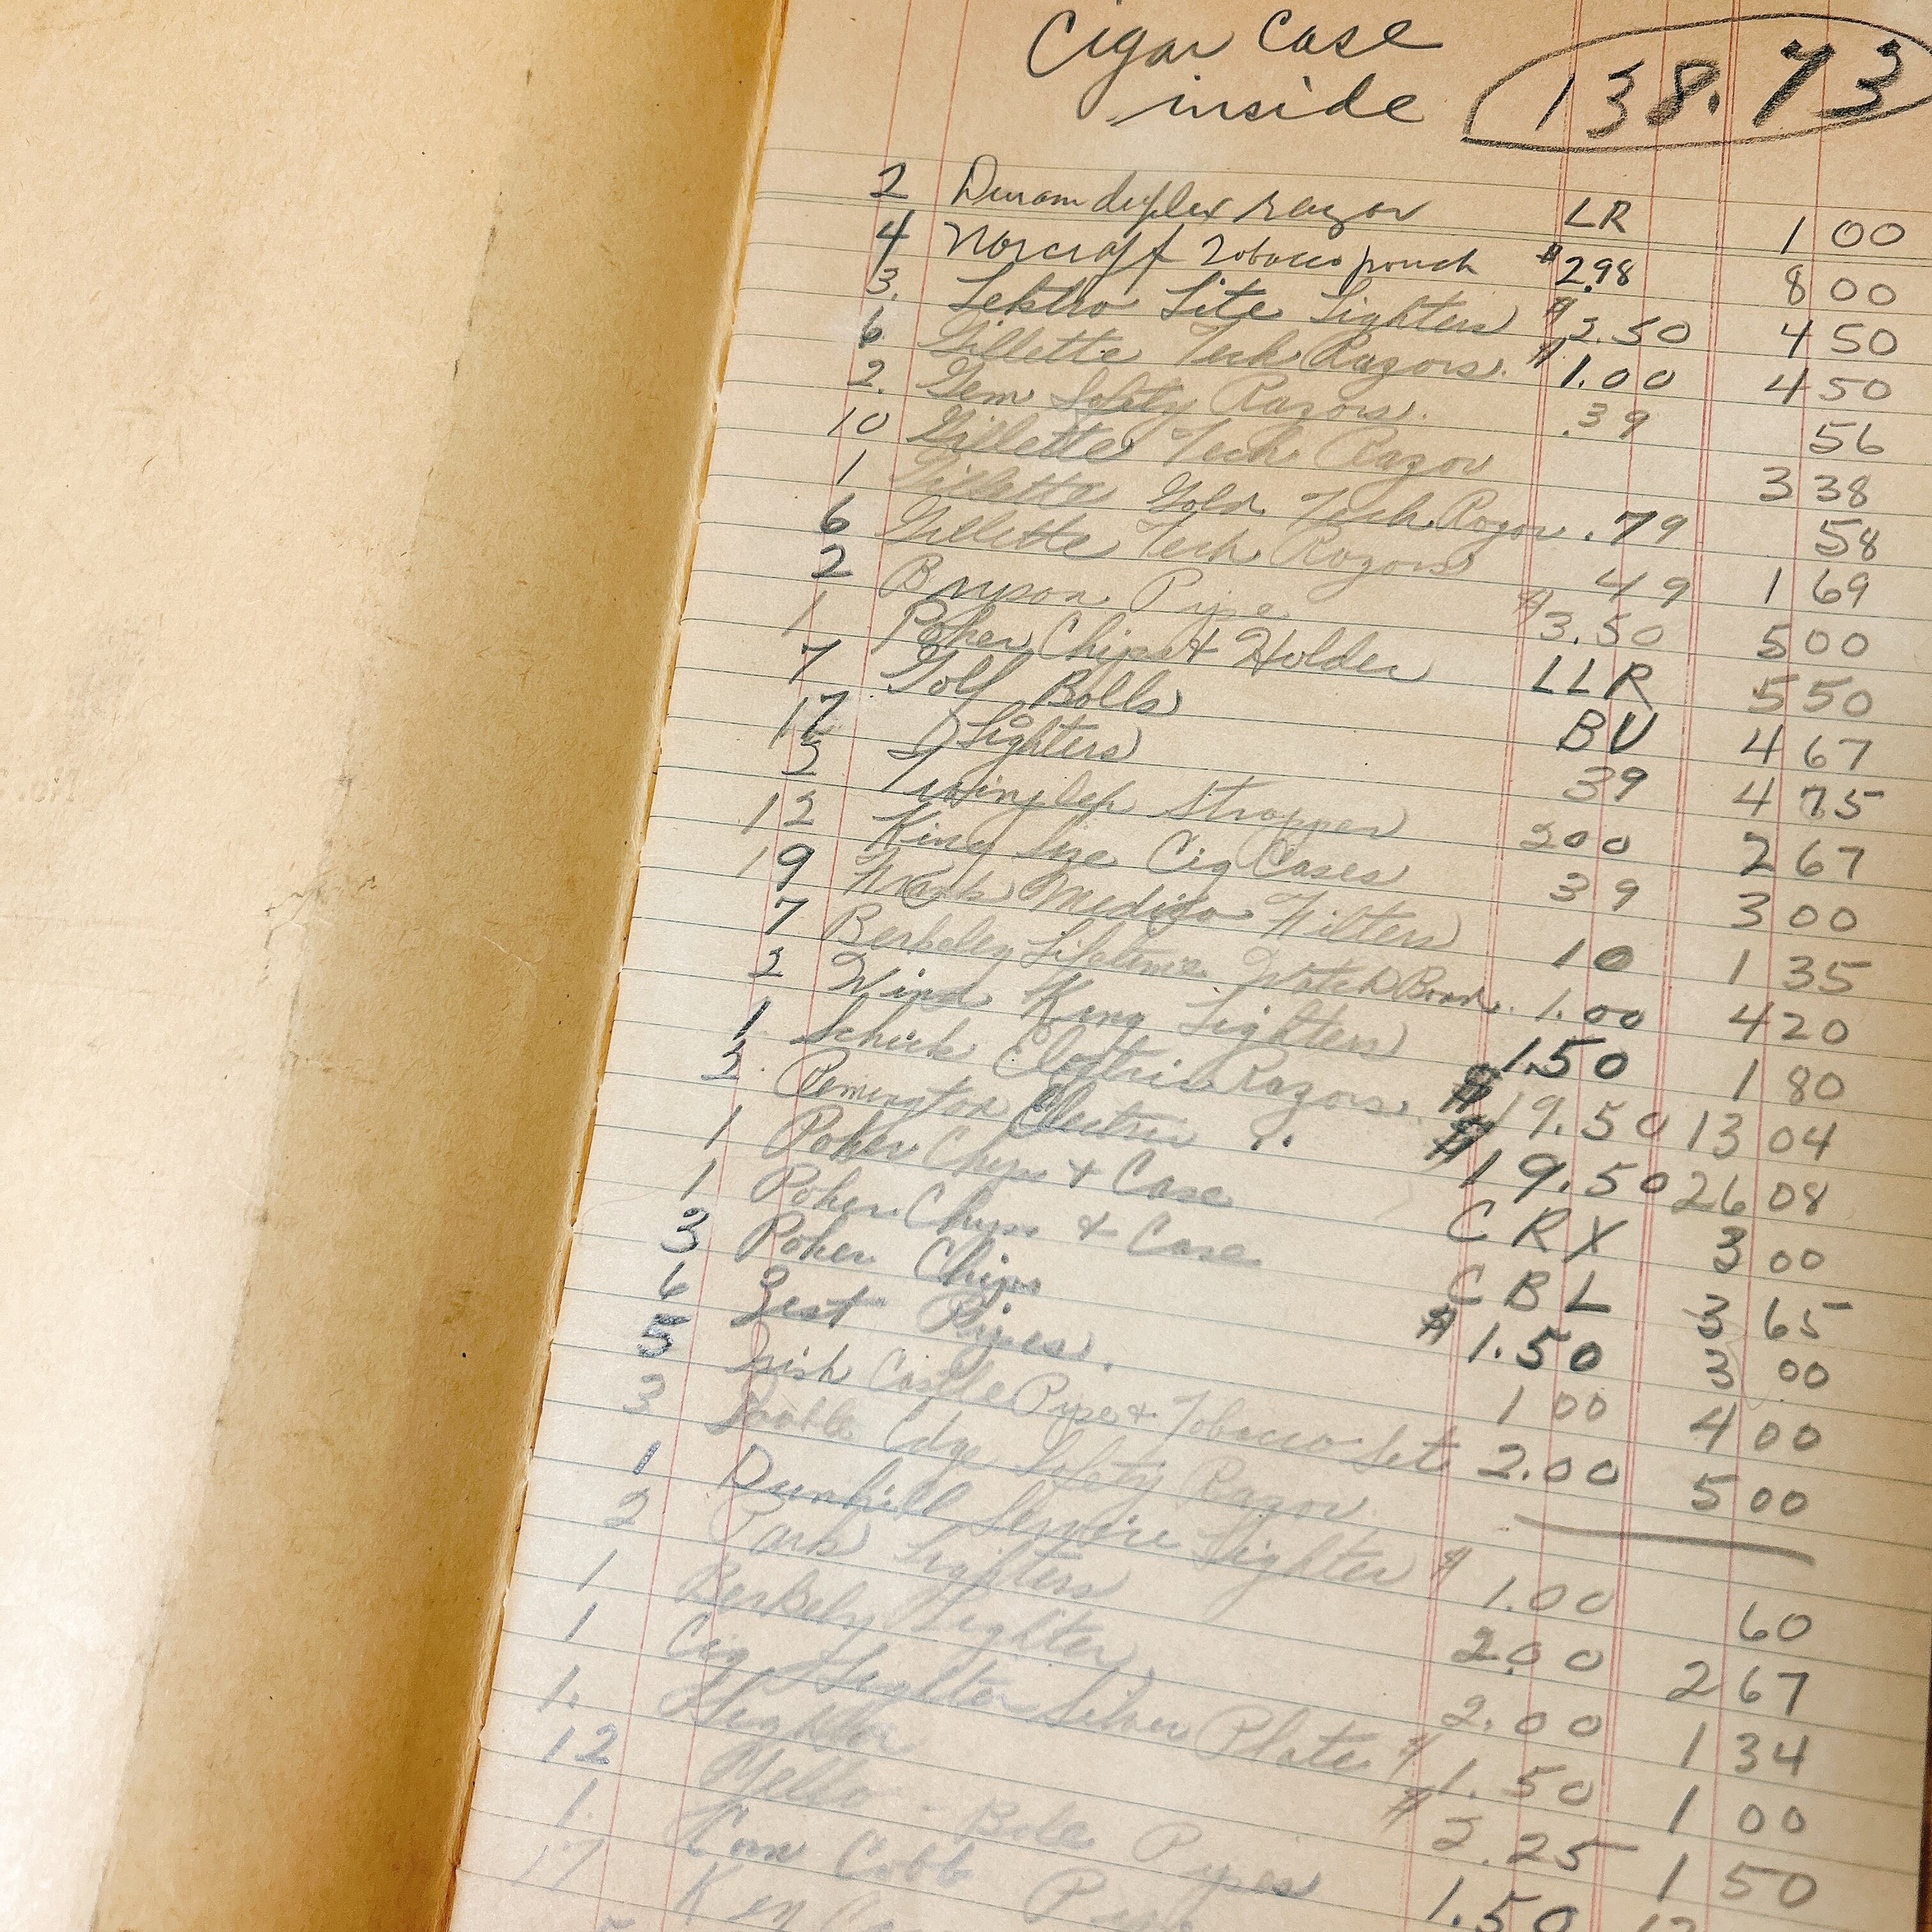 Cigar Case
inside 138.73
2 Duram duplex razor LR 1 00
4 Norcraft Tobacco pouch $2.98 8 00
3. Lektro Lite Lighters $2.50 4 50
6. Gillette Tech Razors. $1.00 4 50
2. Gem Safety Razors. .39 56
10 Gillette Tech Razor 3 38
1 Gillette Gold Tech Razor .79 58
6 Gillette Tech Razors 49 1 69
2 Bryson Pipe $3.50 5 00
1 Poker Chips & Holder LLR 5 50
7 Golf Balls BU 4 67
17 Lighters 39 4 75
2 Twinplex Stropper 200 2 67
12 King Size Cig Cases 39 3 00
19 Frank Medico Filters 10 1 35
7 Berkeley Lifetime Watch Band. 1.00 4 20
2 Wind King Lighters 1.50 1 80
1. Schick Electric Razors. $19.50 13 04
2. Remington Electric " $19.50 26 08
1 Poker Chips & Case CRX 3 00
1 Poker Chips & Case CBL 3 65
3 Poker Chips $1.50 3 00
6 Zest Pipes. 1 00 4 00
5 Irish Castle Pipe & Tobacco Set 2.00 5 00
3 Double Edge Safety Razor
1 Dunhill Service Lighter $1.00 60
2 Park Lighters 2.00 2 67
1 Berkely Lighter 2.00 1 34
1 Cig Lighter Silver Plate $1.50 1 00
1. Lighter $2.25 1 50
12 Yello-Bole Pipes 1.50 12
1. Corn Cobb Pipe
17 Key